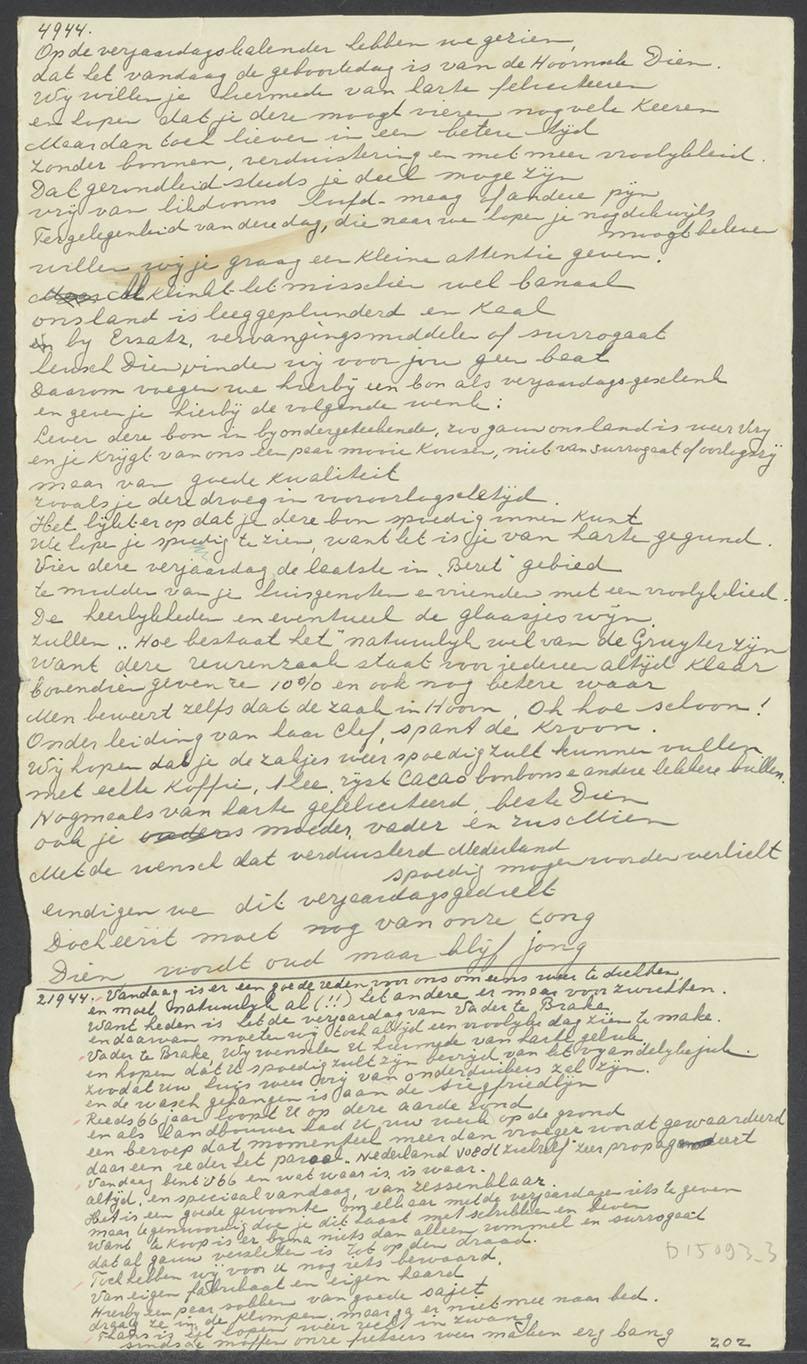 4944.
Op de verjaardagskalender hebben we gezien,
dat het vandaag de geboortedag is van de Hoornsche Dien.
Wij willen je hiermede van harte feliciteeren
en hopen dat je deze moogt vieren nog vele keeren
Maar dan toch liever in een betere tijd
zonder bonnen, verduistering en met meer vroolykheid.
Dat gezondheid steeds je deel moge zijn
vrij van likdoorns hoofd- maag of andere pijn
Ter gelegenheid van deze dag, die naar we hopen je nog dikwijls
moogt beleven
willen wij je graag een kleine attentie geven.
Al klinkt het misschien wel banaal
ons land is leeggeplunderd en kaal
by Ersatz, vervangingsmiddelen of surrogaat
heusch Dien, vinden wij voor jou geen baat
Daarom voegen we hierbij een bon als verjaardagsgeschenk
en geven je hierbij de volgende wenk:
Lever deze bon in by ondergeteekende, zoo gauw ons land is weer vry
en je krijgt van ons een paar mooie kousen, niet van surrogaat of oorlogszij
maar van goede kwaliteit
zooals je deze droeg in vooroorlogschetijd.
Het lijkt er op dat je deze bon spoedig innen kunt
We hope je spoedig te zien, want het is je van harte gegund.
Vier deze verjaardag de laatste in "Bezet" gebied
te midden van je huisgenoten e vrienden met een vroolyk lied.
De heerlykheden en eventueel de glaasjes wijn
zullen "Hoe bestaat het" natuurlyk wel van de Gruyter zijn
Want deze reuzenzaak staat voor iedereen altijd klaar
Bovendien geven ze 10% en ook nog betere waar
Men beweert zelfs dat de zaak in Hoorn, Oh hoe schoon!
Onder leiding van haar Chef, spant de Kroon.
Wij hopen dat je de zakjes weer spoedig zult kunnen vullen
met echte Koffie, Thee, rijst Cacao bonbons e andere lekkere bullen.
Nogmaals van harte gefeliciteerd, beste Dien
ook je moeder, vader en zus Mien
Met de wensch dat verduisterd Nederland
spoedig mogen worden verlicht
eindigen we dit verjaardagsgedicht
Doch eerst moet nog van onze tong
Dien wordt oud maar blijf jong
21944. Vandaag is er een goede reden voor ons om eens weer te dichten,
en moet natuurlyk al (!!) het andere er maar voor zwichten.
Want heden is het de verjaardag van Vader te Brake
en daarvan moeten wij toch altijd een vroolyke dag zien te make.
Vader te Brake, Wij wenschen U hiermede van harte geluk
en hopen dat U spoedig zult zijn bevrijd van het vyandelyke juk.
zoodat uw huis weer vrij van onderduikers zal zijn.
en de wasch gehangen is aan de Siegfriedlijn
Reeds 66 jaar loopt U op deze aarde rond
en als landbouwer had U uw werk op de grond
een beroep dat momenteel meer dan vroeger wordt gewaardeerd
daar een ieder het parool "Nederland voedt zichzelf" zeer propageert
Vandaag bent U 66 en wat waar is, is waar.
altijd, en speciaal vandaag, van zessenklaar.
Het is een goede gewoonte om elkaar met de verjaardagen iets te geven
maar tegenwoordig doe je dit haast met schrikken en beven
Want te koop is er byna niets dan alleen rommel en surrogaat
dat al gauw versleten is tot op den draad.
Toch hebben wij voor U nog iets bewaard,
Van eigen fabrikaat en eigen haard
Hierby een paar sokken van goede sajet
draag ze in de klompen, maar ga er niet mee naar bed.
Thans is het loopen weer zeer in zwang
sinds de moffen onze fietsers weer maken erg bang
ZOZ
D15093_3